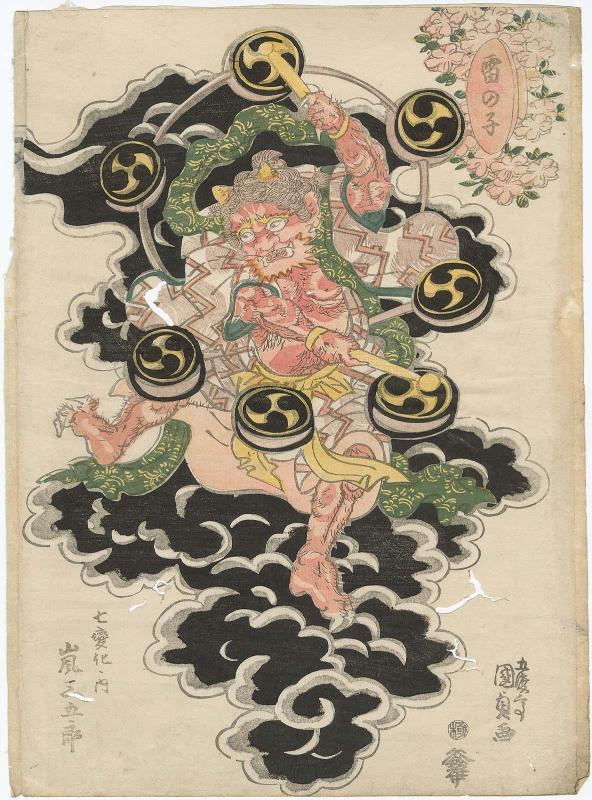 雷の子
七変化ノ内
嵐三五郎
五渡亭
国貞画
極